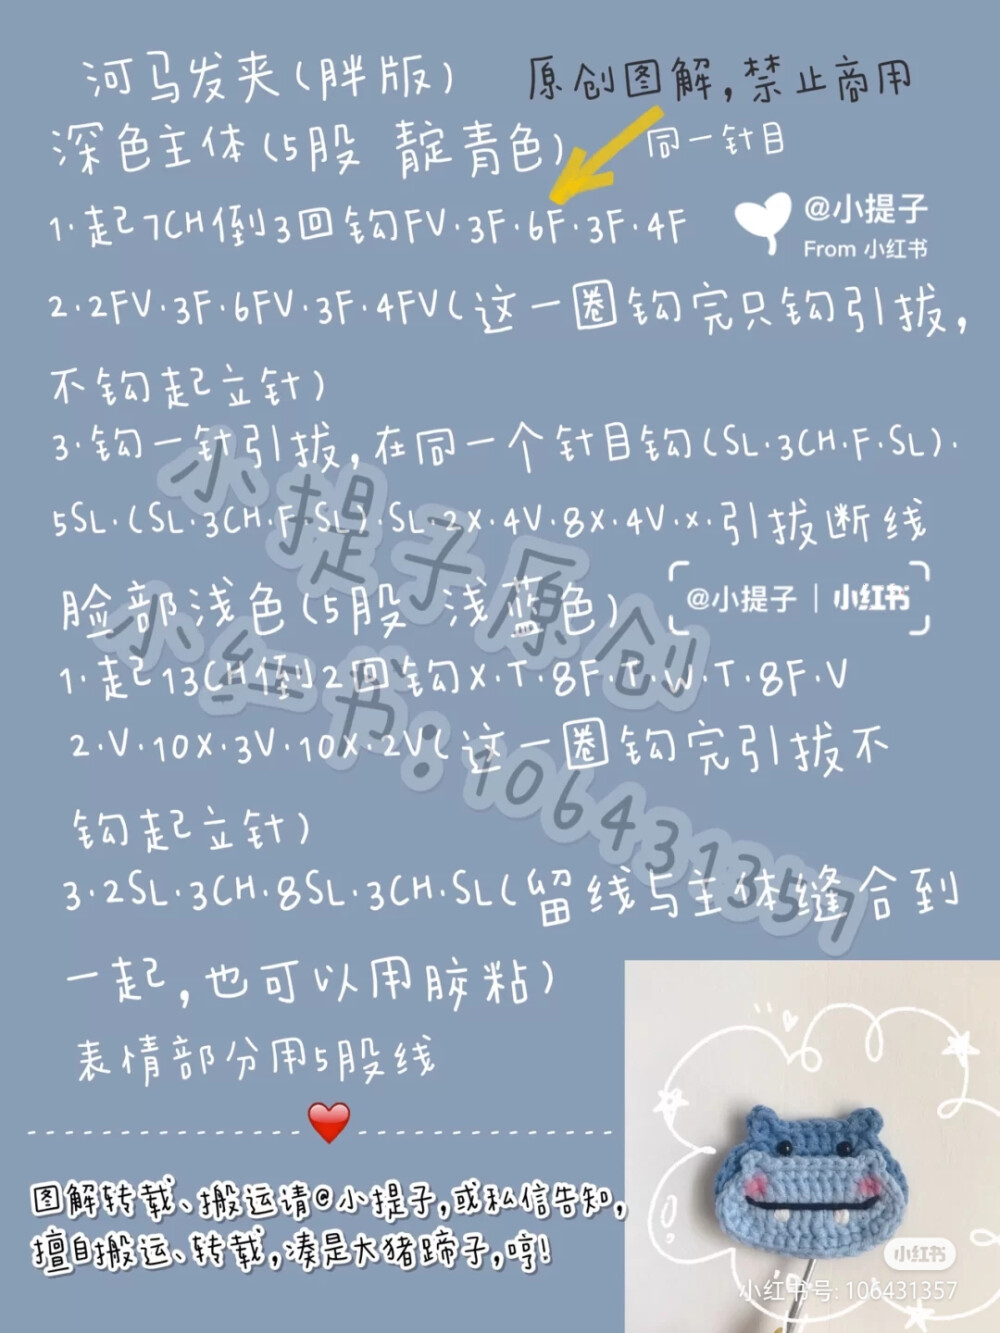 河马发夹(胖版)
原创图解,禁止商用
深色主体(5股 靛青色)
同一针目
1·起7CH倒3回钩FV·3F·6F·3F·4F
@小提子
From 小红书
2·2FV·3F·6FV·3F·4FV(这一圈钩完只钩引拔,
不钩起立针)
3·钩一针引拔,在同一个针目钩(SL·3CH·F·SL)·
5SL·(SL·3CH·F·SL)·SL·2X·4V·8X·4V·X·引拔断线
脸部浅色(5股 浅蓝色)
@小提子 | 小红书
1·起13CH倒2回钩X·T·8F·T·W·T·8F·V
2·V·10X·3V·10X·2V(这一圈钩完引拔不
钩起立针)
3·2SL·3CH·8SL·3CH·SL(留线与主体缝合到
一起,也可以用胶粘)
表情部分用5股线
小提子原创
小红书:106431357
图解转载、搬运请@小提子,或私信告知,
擅自搬运、转载,凑是大猪蹄子,哼!
小红书
小红书号: 106431357